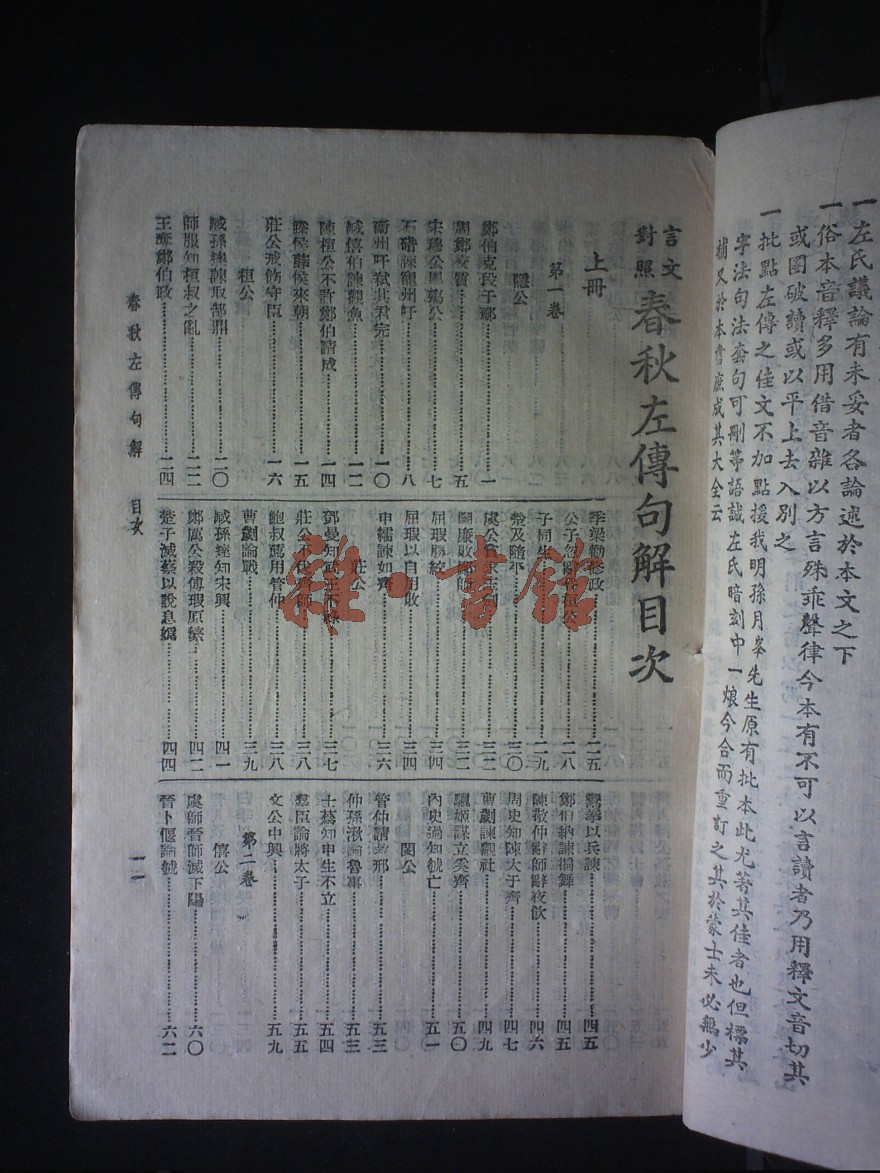 一左氏議論有未妥者各論述於本文之下
一俗本音釋多用借音雜以方言殊乖聲律今本有不可以言讀者乃用釋文音切其
或圈破讀或以平上去入別之
一批點左傳之佳文不加點援我明孫月峯先生原有批本此尤著其佳者也但標其
字法句法套句可刪等語誠左氏暗刻中一燈今合而重訂之其於蒙士未必無少
補又於本書庶成其大全云
言文對照
春秋左傳句解目次
上冊
第一卷
隱公
鄭伯克段于鄢 一
周鄭交質 五
宋穆公屬殤公 七
石碏諫寵州吁 八
衞州吁弒其君完 一〇
臧僖伯諫觀魚 一二
陳桓公不許鄭伯請成 一四
滕侯薛侯來朝 一五
莊公戒飭守臣 一六
桓公
臧孫達諫取郜鼎 二〇
師服知桓叔之亂 二二
王奪鄭伯政 二四
季梁勸修政 二五
公子忽辭昏桓公 二八
子同生 二九
楚及隨平 三〇
虞公 三二
鬭廉敗鄖師 三三
屈瑕勝絞 三四
屈瑕以自用敗 三四
申繻諫如齊 三六
莊公
鄧曼知 三七
莊公不伐齊師 三八
鮑叔薦用管仲 三八
曹劌論戰 三九
臧孫達知宋興 四一
鄭厲公殺傅瑕原繁 四二
楚子滅蔡以說息媯 四四
鬻拳以兵諫 四五
鄭伯納諫徧舞 四五
陳敬仲辭師辭夜飲 四六
周史知陳大于齊 四七
曹劌諫觀社 四九
驪姬謀立奚齊 五〇
內史過知虢亡 五一
閔公
管仲請救邢 五三
仲孫湫論魯事 五三
士蒍知申生不立 五四
羣臣論將太子 五五
文公中興 五九
第二卷
僖公
虞師晉師滅下陽 六〇
晉卜偃論虢 六二
春秋左傳句解 目次
一
雜·書館